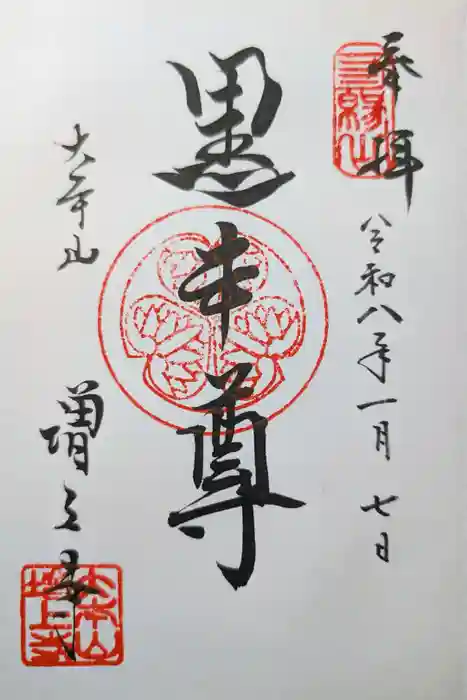 奉拝
令和八年一月七日
黒本尊
大本山
増上寺
三縁山
大本山増上寺